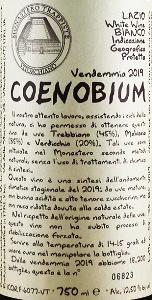 MONASTERO TRAPPISTE
VITORCHIANO
LAZIO
White Wine
BIANCO
Indicazione
Geografica
Protetta
Vendemmia 2019
COENOBIUM
Il nostro attento lavoro, assistendo i cicli della
natura, ci ha permesso di ottenere quest'
da uve Trebbiano (45%), Malvasia
(35%) e Verdicchio (20%). Tali uve son
coltivate nel Monastero secondo metodi
naturali senza l'uso di trattamenti di
sintesi.
Questo vino è una sintesi dell'andamento
climatico stagionale del 2019; da uve mature
buona acidità e alto tenore zuccherino
con resa ridotta dovuta alla calda estate.
Nel rispetto dell'origine naturale delle uve
questo vino non ha subito processi
stabilizzazione forzata.
Servire alla temperatura di 14-15 gradi
non manipolare la bottiglia.
Dalla vendemmia 2019 abbiamo 18.200
bottiglie; questa è la n° 06823
750 ml e
Alc. 12,50% by vol